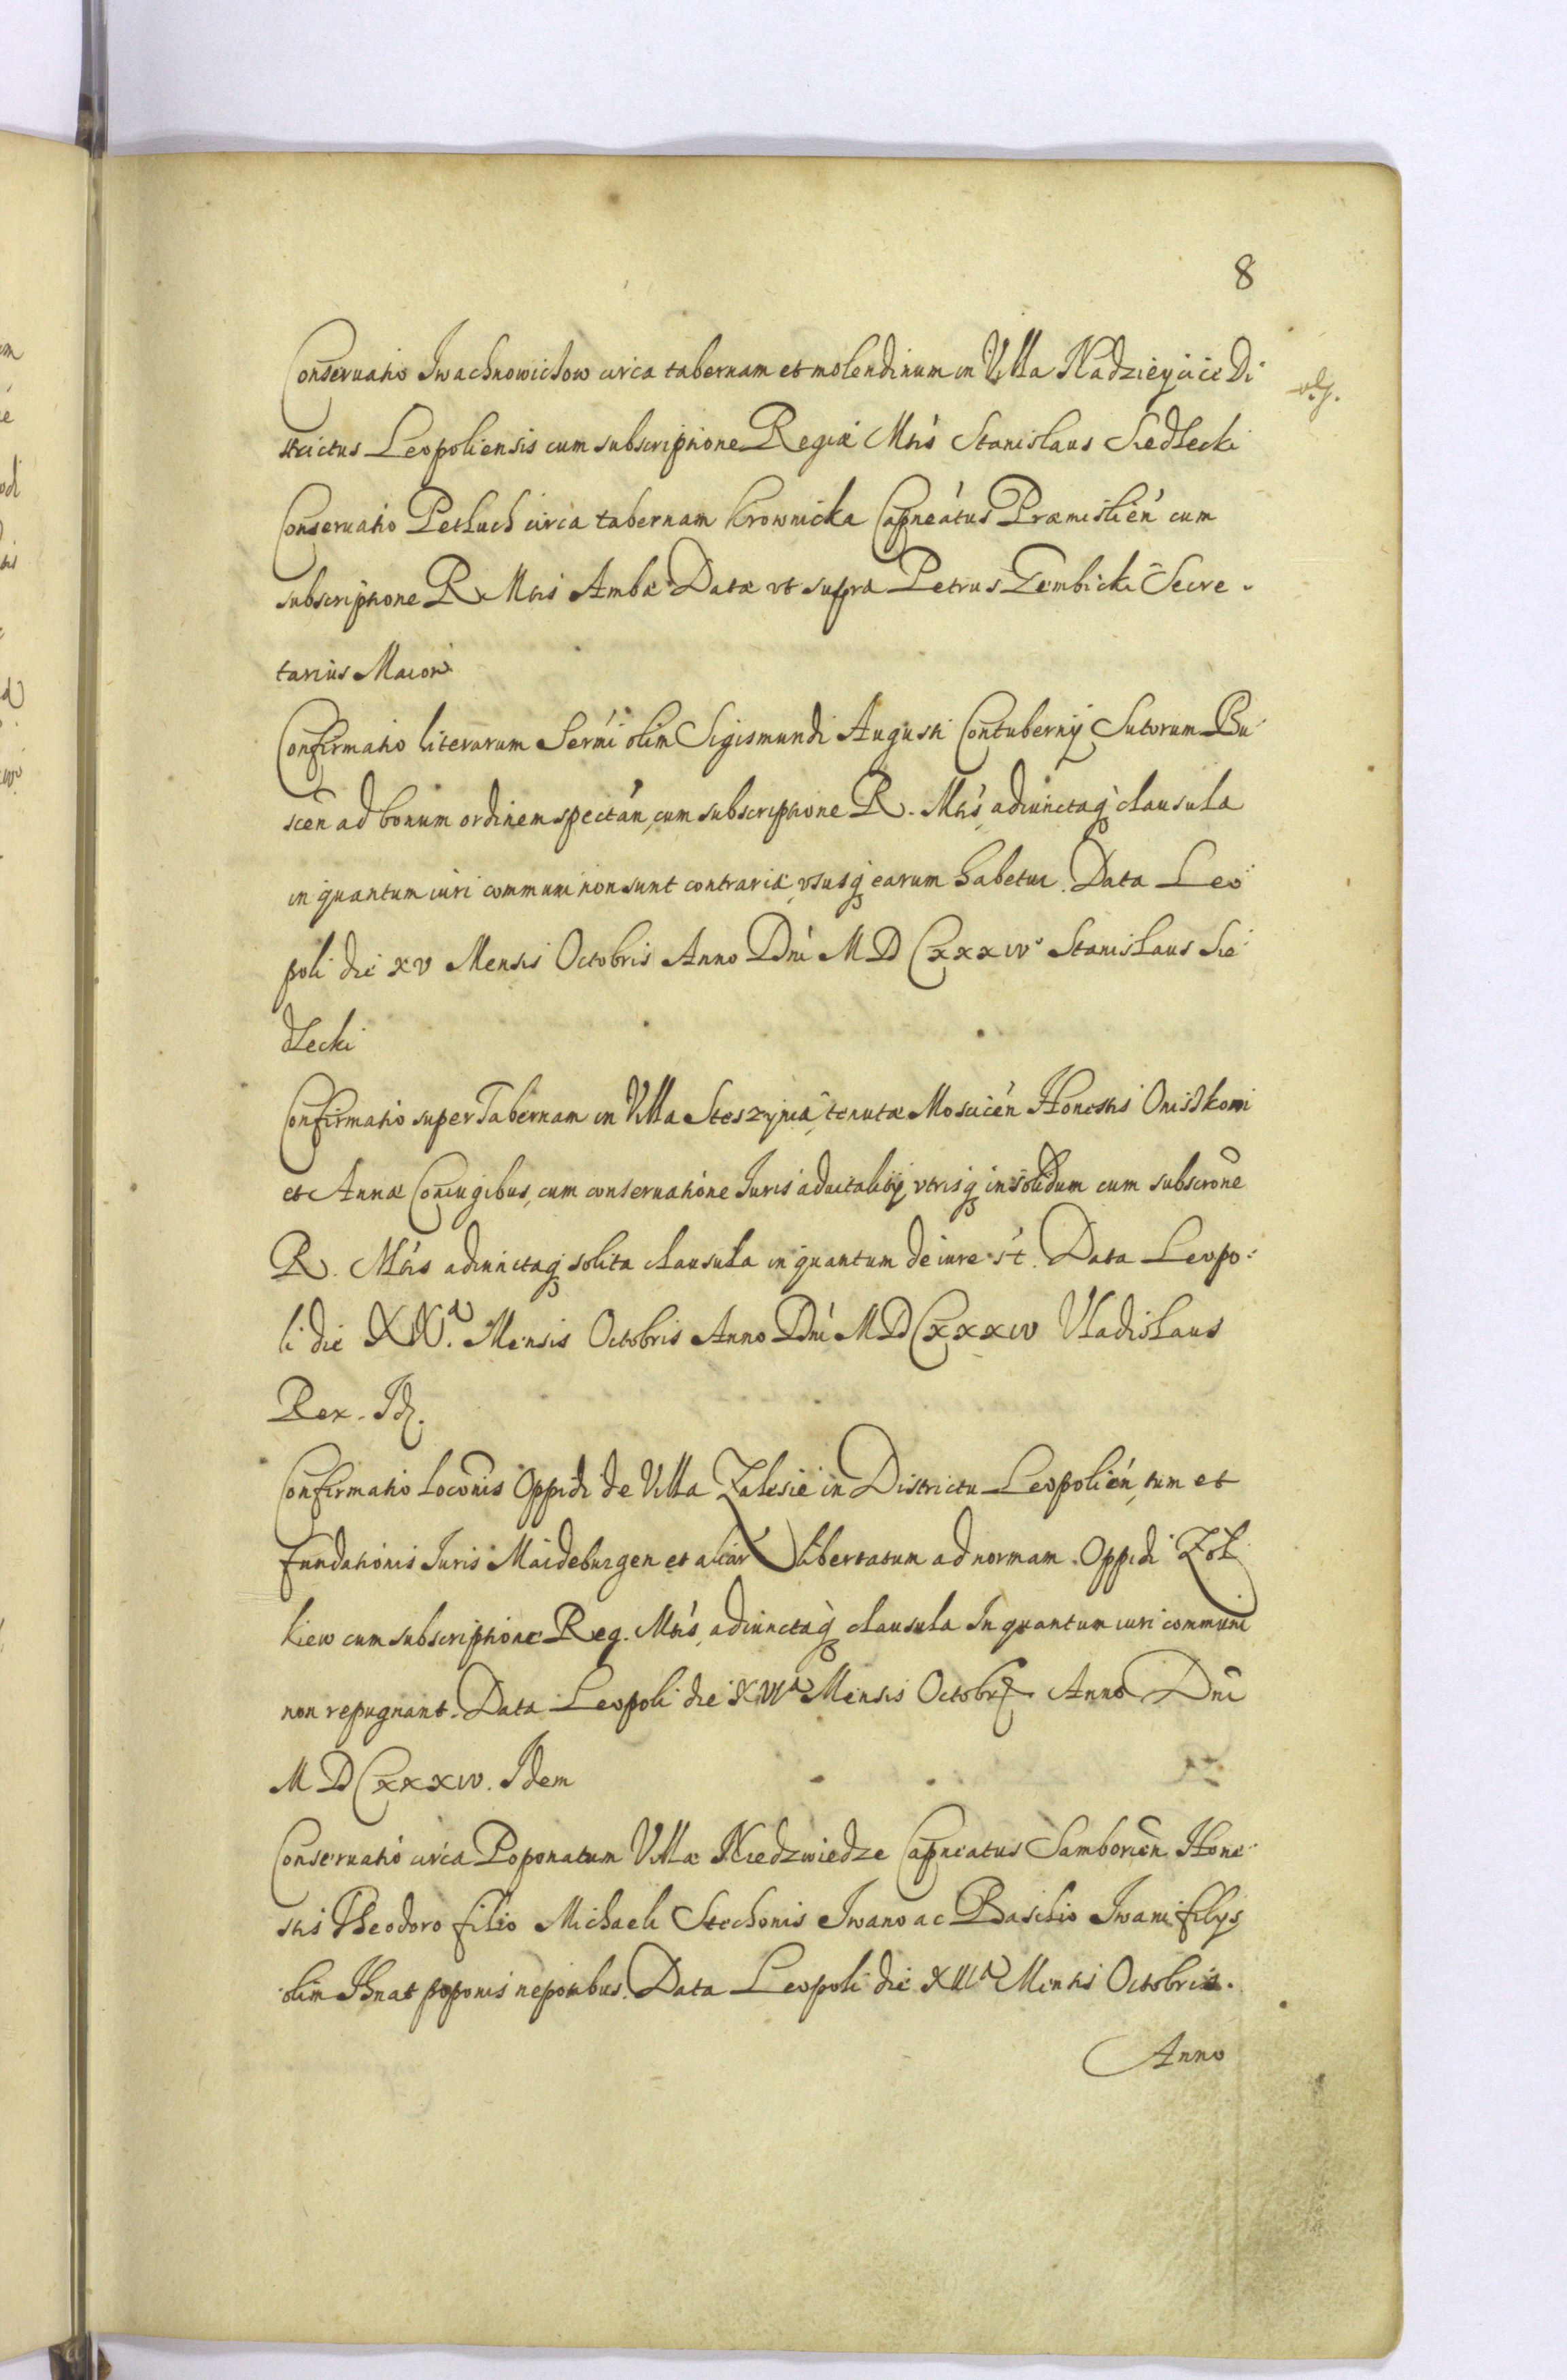 8
Conseruatio Iwachnowiczow circa tabernam et molendinum in Villa Nadzieycice Di
strictus Leopoliensis cum subscriptione Regiæ Mtis Stanislaus Siedlecki
Conseruatio Petluch circa tabernam Krownicka Capneatus Præmislien cum
subscriptione R Mtis Ambæ Datæ vt supra Petrus Gembicki Secre
tarius Maior
Confirmatio literarum Sermi olim Sigismundi Augusti Contubernij Sutorum Bu
scen ad bonum ordinem spectan, cum subscriptione R. Mtis, adiunctaq clausula
in quantum iuri communi non sunt contrariæ, vsusq earum habetur. Data Leo
poli die XV Mensis Octobris Anno Dni MDCXXXIV Stanislaus Sie
dlecki
Confirmatio super Tabernam in Villa tenutæ Moscicen Honestis
et Annæ Coniugibus, cum conseruatione Iuris aduitalitij vtrisq in solidum cum subscrone
R. Mtis adiunctaq solita clausula in quantum de iure st. Data Leopo
li die Mensis Octobris Anno Dni MDCXXXIV Vladislaus
Rex. Id.
Confirmatio loconis Oppidi de Villa Zalesie in Districtu Leopolien, tum et
fundationis Iuris Maideburgen et aliar libertatum ad normam Oppidi Zol
kiew cum subscriptione Reg. Mtis, adiunctaq clausula In quantum iuri communi
non repugnant. Data Leopoli die Mensis Octobris Anno Dni
MDCXXXIV. Idem
Conseruatio circa Poponatum Villæ Niedzwiedze Capneatus Samborien Hone
stis Theodoro filio Michaeli Stechonis Iwano ac Baschio Iwani filys
olim Ihnat poponis nepotibus. Data Leopoli die Mensis Octobris.
Anno